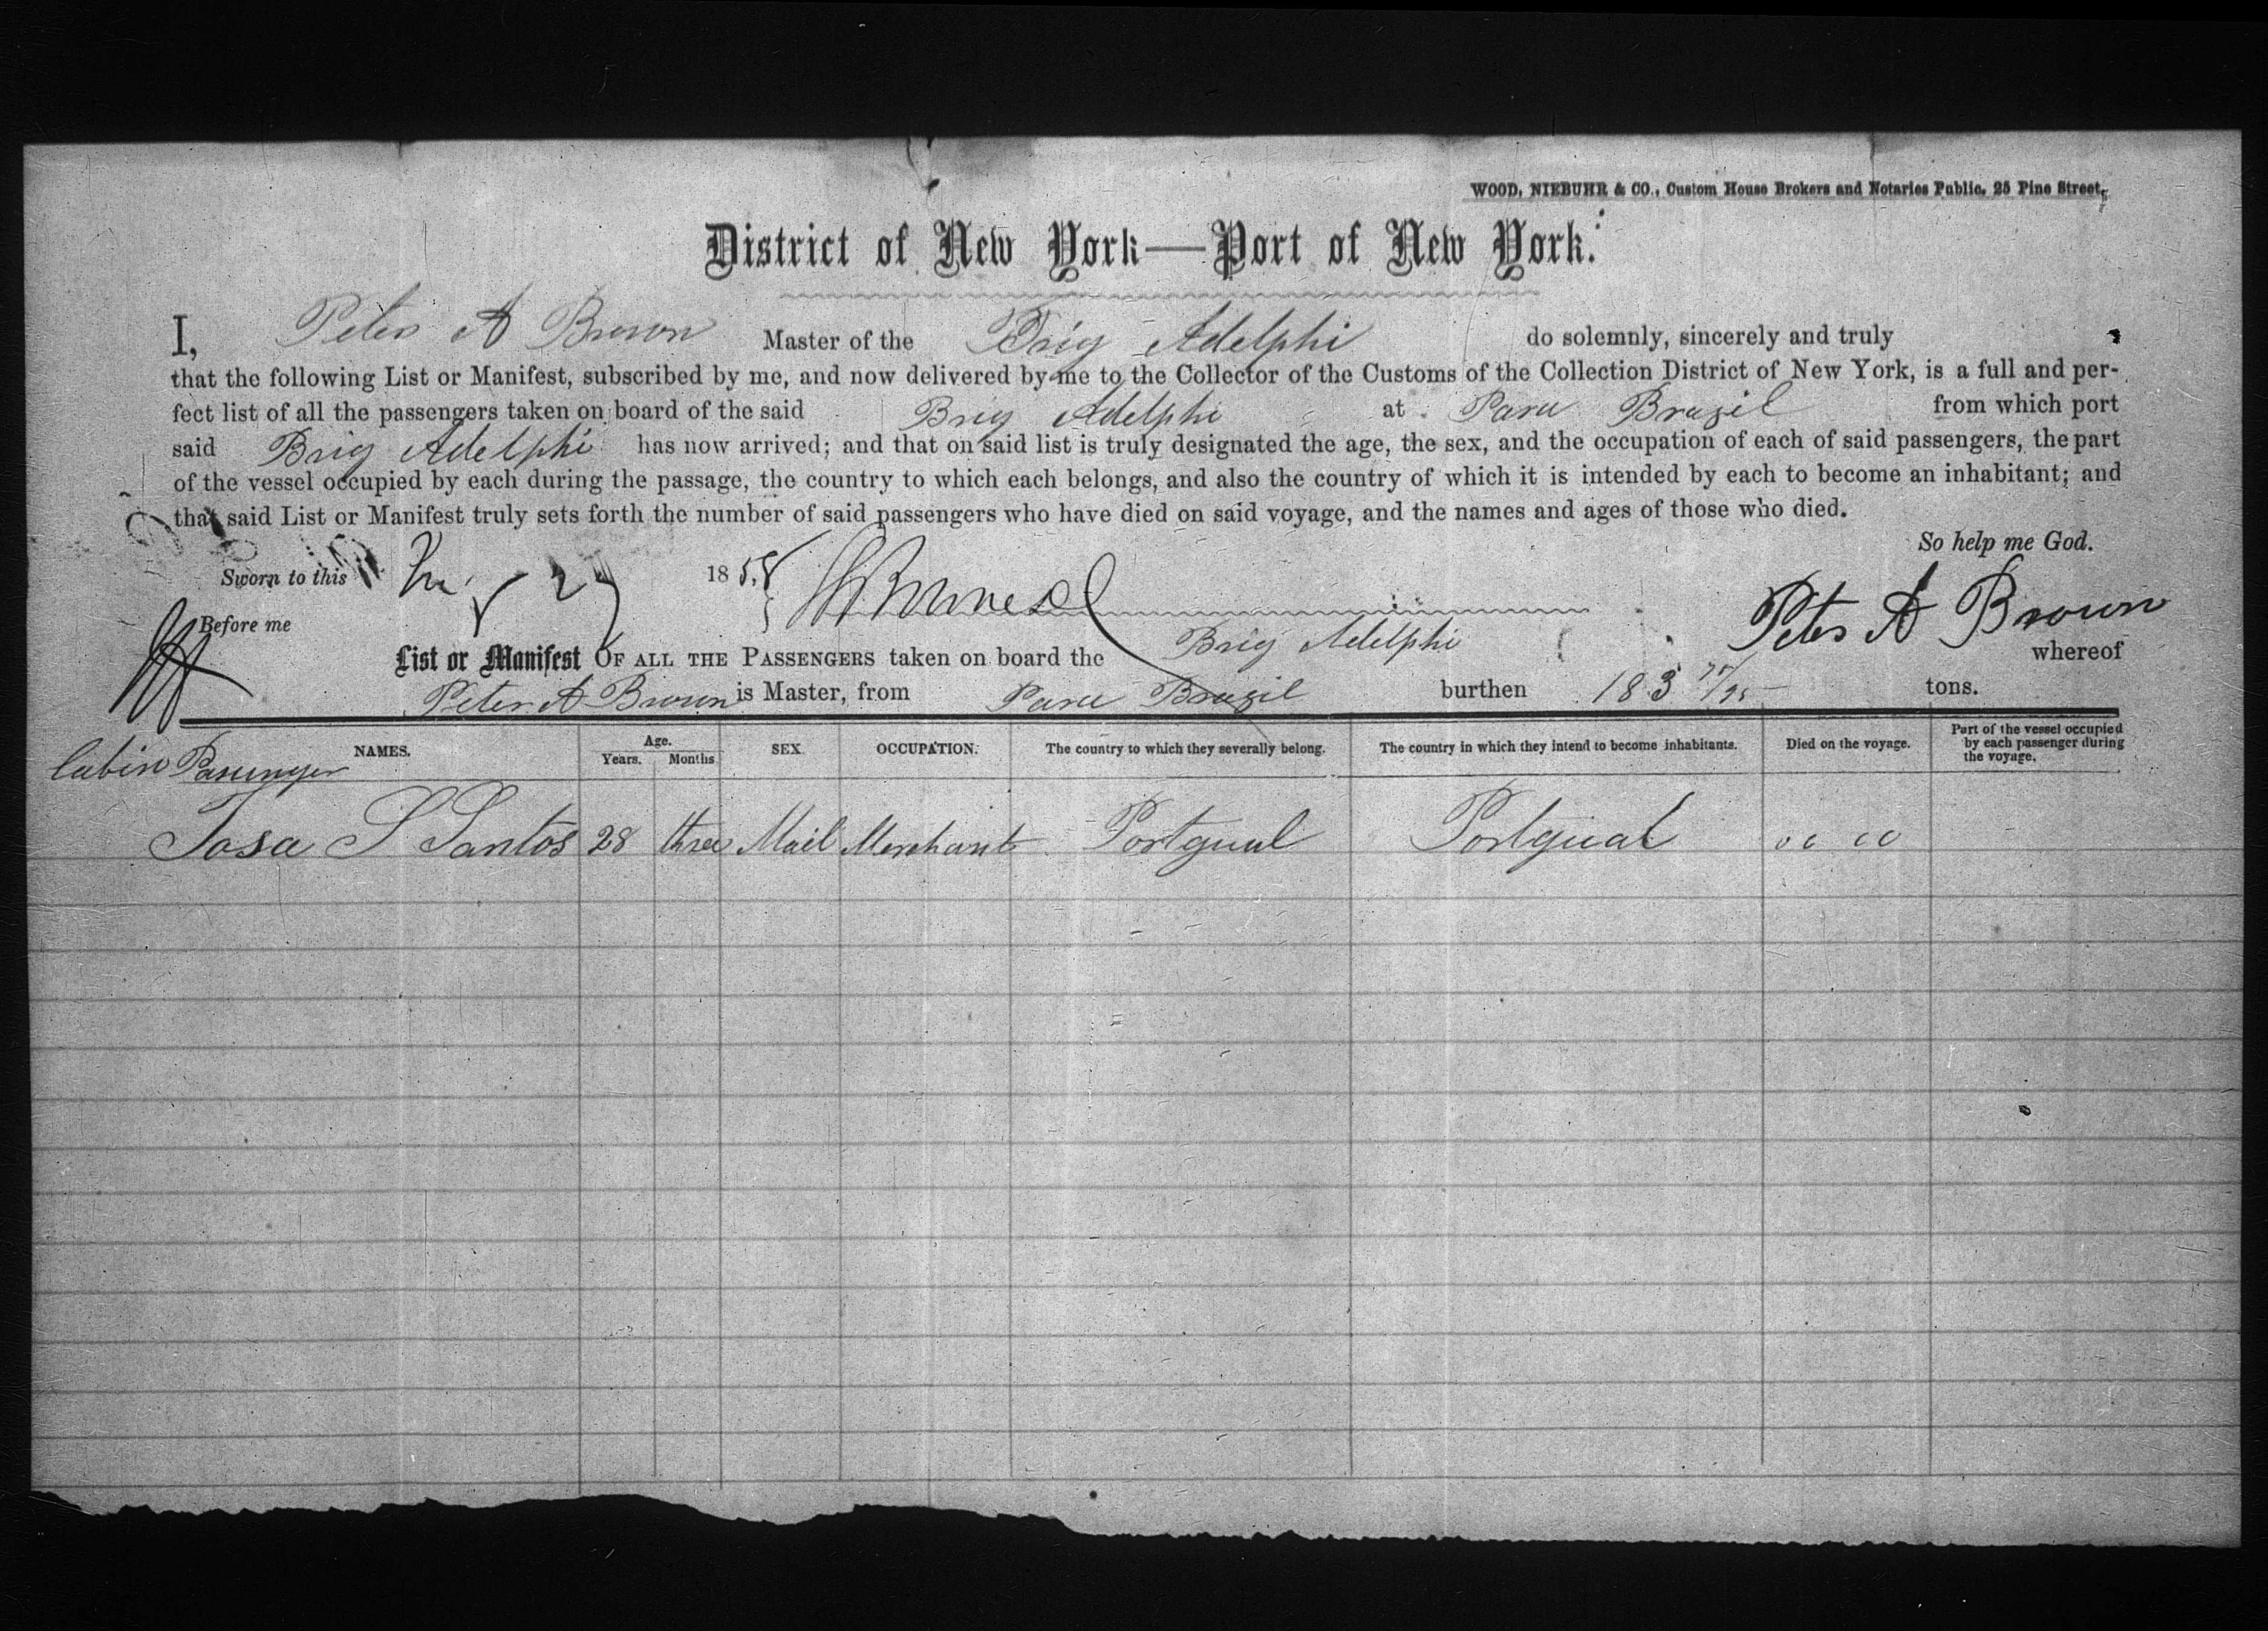 WOOD, NIEBUHR & CO., Custom House Brokers and Notaries Public. 25 Pine Street,
District of New York—Port of New York.
I, Peter A Brown Master of the Brig Adelphi do solemnly, sincerely and truly
that the following List or Manifest, subscribed by me, and now delivered by me to the Collector of the Customs of the Collection District of New York, is a full and per-
fect list of all the passengers taken on board of the said Brig Adelphi at Para Brazil from which port
said Brig Adelphi has now arrived; and that on said list is truly designated the age, the sex, and the occupation of each of said passengers, the part
of the vessel occupied by each during the passage, the country to which each belongs, and also the country of which it is intended by each to become an inhabitant; and
that said List or Manifest truly sets forth the number of said passengers who have died on said voyage, and the names and ages of those who died.
So help me God.
Sworn to this 27 1858
Peter A Brown
Before me
List or Manifest OF ALL THE PASSENGERS taken on board the Brig Adelphi whereof
Peter A Brown is Master, from Para Brazil burthen 183 tons.
NAMES. Age. Years. Months SEX. OCCUPATION. The country to which they severally belong. The country in which they intend to become inhabitants. Died on the voyage. Part of the vessel occupied by each passenger during the voyage.
Cabin Passenger
Josa S Santos 28 three Mail Merchant Portgual Portgual